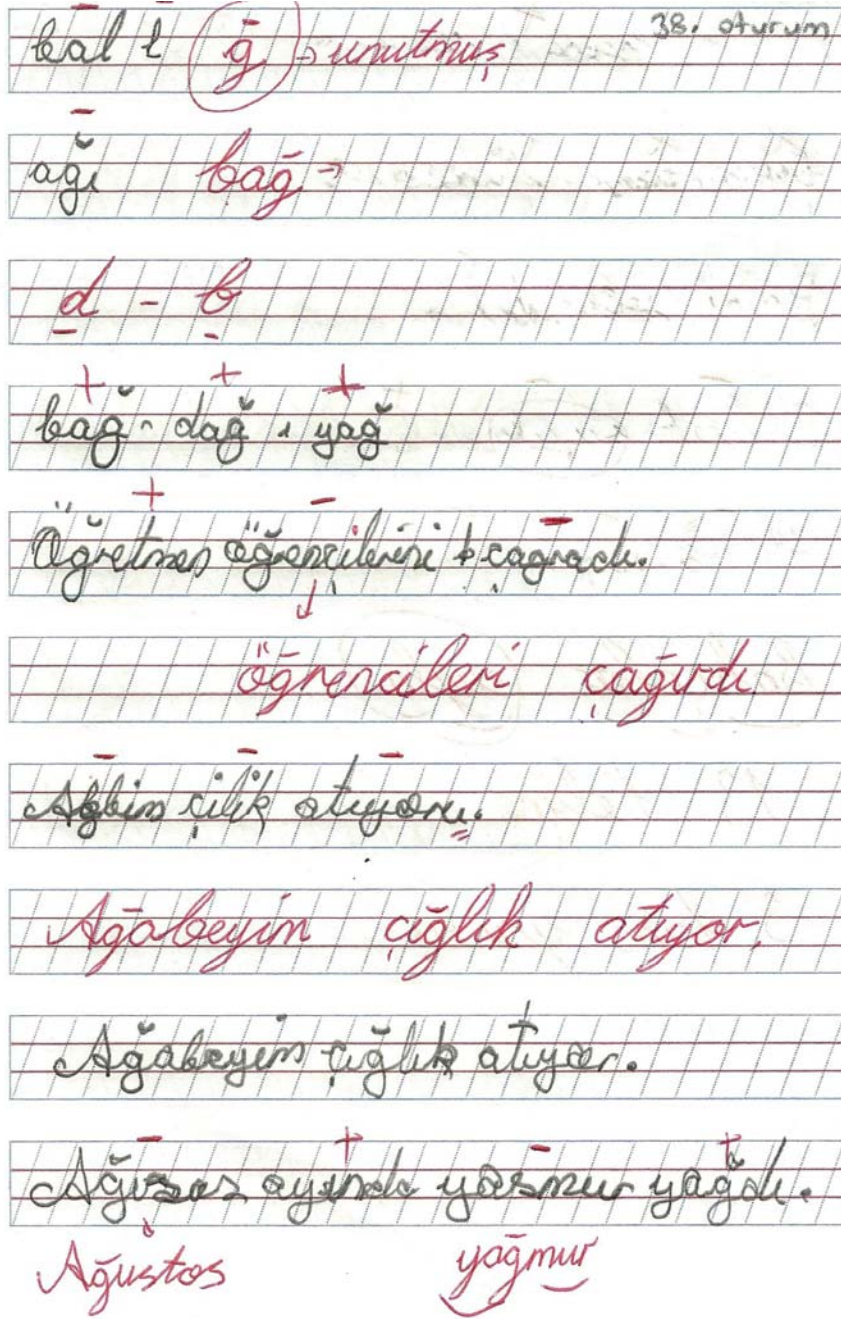 38. oturum
bal l ğ → unutmuş
ağı bağ →
d - b
bağ - dağ , yağ
Öğretmen öğrencilerini çağradı.
öğrencileri çağırdı
Ağbim çilik atıyoru.
Ağabeyim çığlık atıyor.
Ağabeyim çığlık atıyor.
ayında yasmur yağdı.
Ağustos yağmur